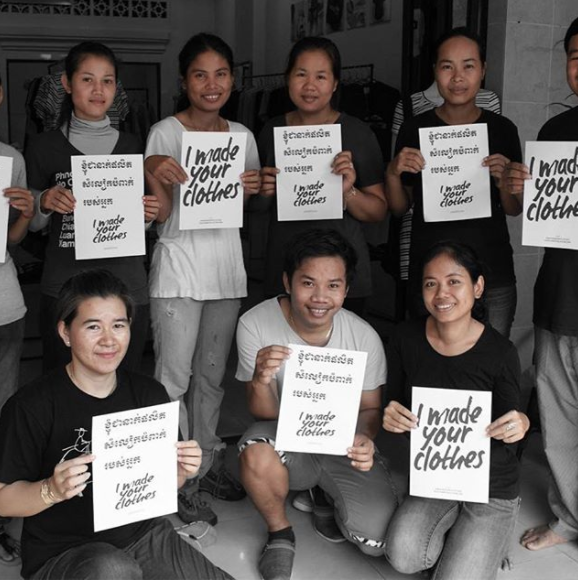 ខ្ញុំជាអ្នកផលិត
សំលៀកបំពាក់
របស់អ្នក
I made
your
clothes
I made
your
clothes
ខ្ញុំជាអ្នកផលិត
សំលៀកបំពាក់
របស់អ្នក
I made
your
clothes
ខ្ញុំជាអ្នកផលិត
សំលៀកបំពាក់
របស់អ្នក
I made
your
clothes
I made
your
clothes
ខ្ញុំជាអ្នកផលិត
សំលៀកបំពាក់
របស់អ្នក
I made
your
clothes
ខ្ញុំជាអ្នកផលិត
សំលៀកបំពាក់
របស់អ្នក
I made
your
clothes
I made
your
clothes